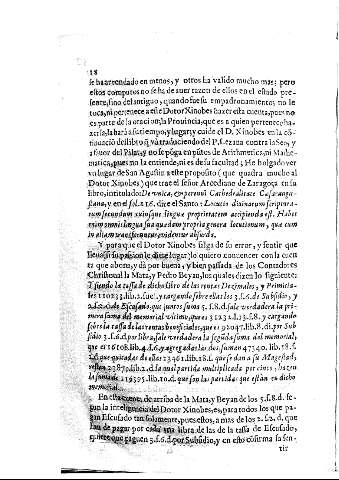 18
se ha arrendado en menos, y otros ha valido mucho mas; pero
estos computos no se ha de auer razon de ellos en el estado pre-
sente, sino del antiguo, quando fue su empadronamiento, no le
toca, ni pertenece a este Dotor Xinobes hazer esta cuenta, pues no
es parte de la otra con la Prouincia, que es a quien pertenece ha-
zerla, la harà a su tiempo, y lugar, y cuide el D. Xinobes en la cō-
tinuacio del libro q̄ và traduciendo del P. Lezana contra la Seo, y
a fauor del Pilar, y no se pōga en pūtos de Arismetica, ni Mathe-
matica, pues no la entiende, ni es de su facultad; He holgado ver
vn lugar de San Agustin a este proposito (que quadra mucho al
Dotor Xinobes) que trae el señor Arcediano de Zaragoça en su
libro, intitulado De vnica, & perenni Cathedralitate Caesaraugu-
stana, y en el fol. 216. dize el Santo: Locutio diuinarum scriptura-
rum secundum cuiusque linguae proprietatem accipienda est. Habet
enim omnis lingua sua quaedam propria genera locutionum, quae cum
in aliam transferuntur videntur absurda.
Y para que el Dotor Xinobes salga de su error, y sentir que
lleuo (si su passion le diere lugar) lo quiero comenter con la cuen-
ta que abora, y dà por buena, y bien passada de los Contadores
Christoual la Mata, y Pedro Beyan, los quales dizen lo siguiente:
Y siendo la tassa de dicho libro de las rentas Dezimales, y Primicia-
les 110233. lib. 2. sue. y cargando sobre ellas los 3. s. 6. de Subsidio, y
2. s. 2. d. de Escusado, que juntos suma 5. s. 8. d. sale verdadera la pri-
mera suma del memorial vltimo, que es 31232. l. 13. s. 8. y cargando
sobre la tassa de las rentas beneficiales, que es 92047. lib. 8. d. por Sub
sidio 3. s. 6. d. por libra, sale verdadera la segunda suma del memorial,
que es 16108. lib. 4. s. 6. y agregadas las dos suman 47340. lib. 18. s.
2. d. que quitadas de ellas 23461. lib. 18. s. que se dan a su Magestad,
restan 23879. lib. 2. d. la qual partida multiplicada por cinco, hazen
la suma de 119395. lib. 10. d. que son las partidas que estàn en dicho
memorial.
En esta cuenta, de arriba de la Mata, y Beyan de los 5. s. 8. d. se-
gun la inteligencia del Dotor Xinobes, es, para todos los que pa-
gan Escusado tan solamente, pues estos, a mas de los 2. s. 2. d. que
han de pagar por cada una libra de las de la tassa de Escusado,
quiere que paguen 3. s. 6. d. por Subsidio, y en esto confirma su sen-
tir